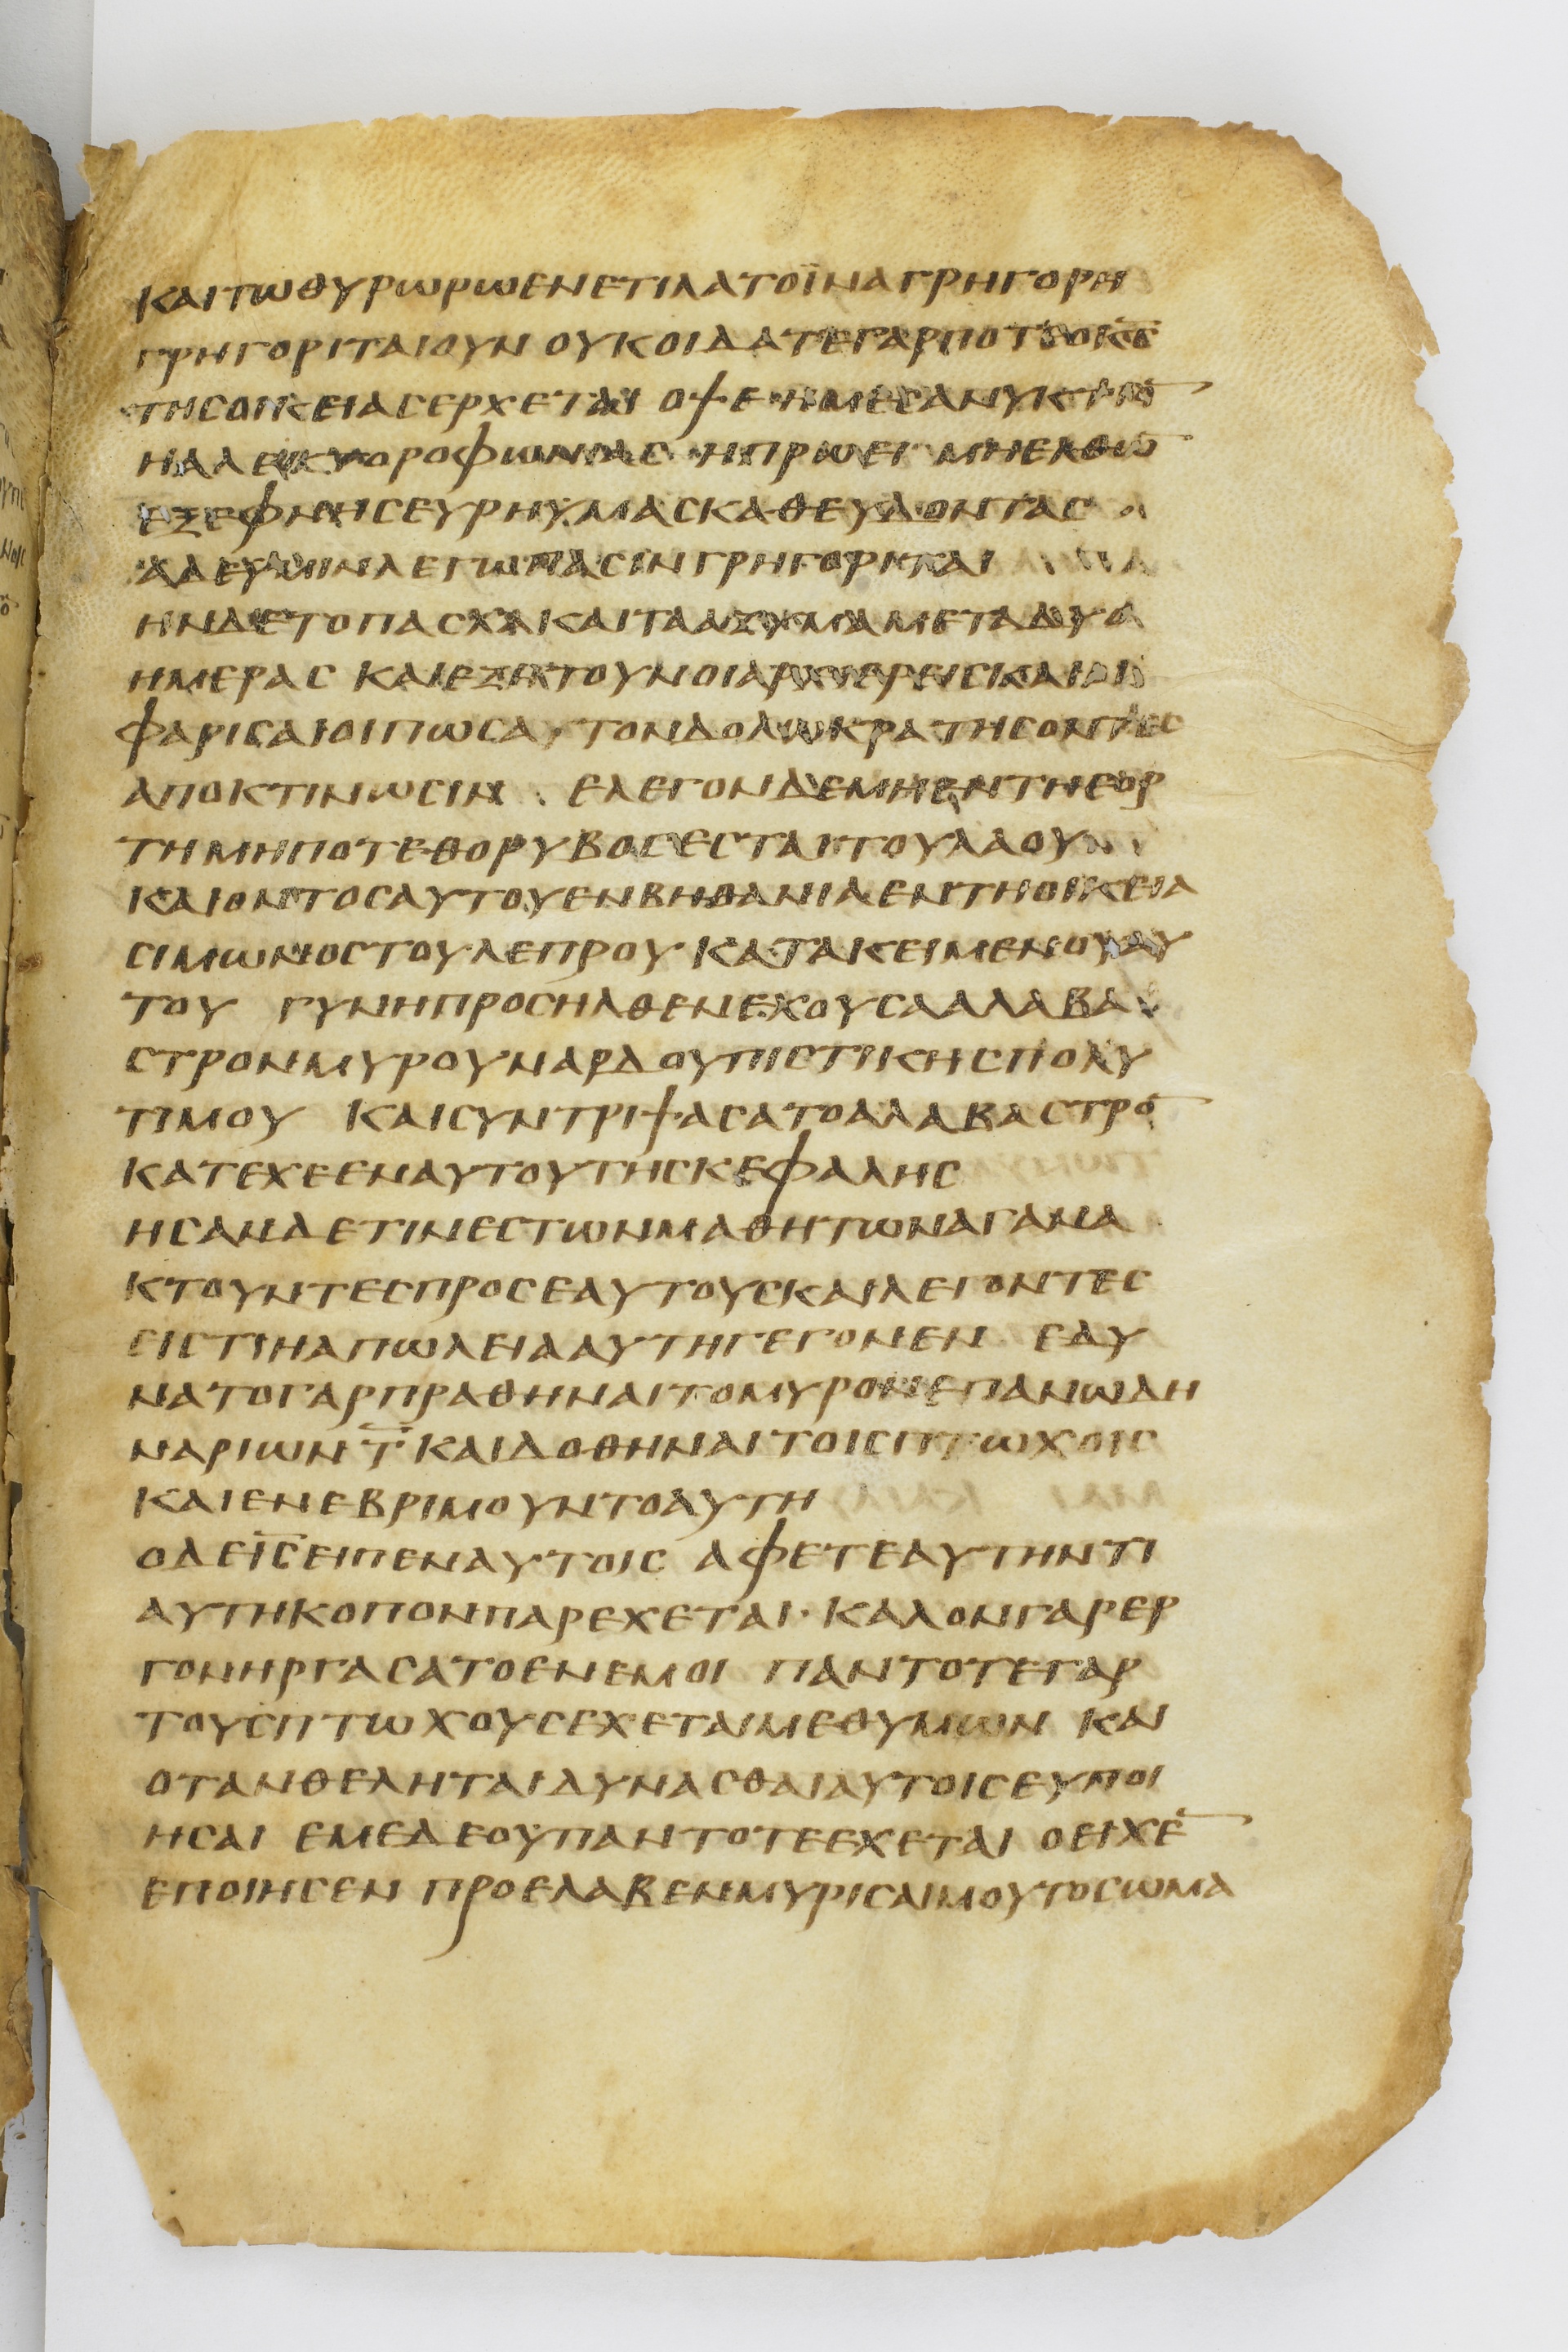 ΚΑΙΤΩΘΥΡΩΡΩΕΝΕΤΙΛΑΤΟΪΝΑΓΡΗΓΟΡΗ
ΓΡΗΓΟΡΙΤΑΙΟΥΝ ΟΥΚΟΙΔΑΤΕΓΑΡΠΟΤΕΟΚ̅Σ̅
ΤΗΣΟΙΚΕΙΑΣΕΡΧΕΤΑΙ ΟΨΕΗΜΕΣΑΝΥΚΤΙΟ̅
ΗΑΛΕΚΤΟΡΟΦΩΝΙΑΣ ΗΠΡΩΕΙ ΜΗΕΛΘΩ̅
ΕΞΕΦΝΗΣΕΥΡΗΥΜΑΣΚΑΘΕΥΔΟΝΤΑΣ
ΑΔΕΥΜΙΝΛΕΓΩΠΑΣΙΝΓΡΗΓΟΡΙΤΑΙ
ΗΝΔΕΤΟΠΑΣΧΑΚΑΙΤΑΑΖΥΜΑΜΕΤΑΔΥΟ
ΗΜΕΡΑΣ ΚΑΙΕΖΗΤΟΥΝΟΙΑΡΧΙΕΡΕΙΣΚΑΙΟΙ
ΦΑΡΙΣΑΙΟΙΠΩΣΑΥΤΟΝΔΟΛΩΚΡΑΤΗΣΟΝΤΕΣ
ΑΠΟΚΤΙΝΩΣΙΝ ΕΛΕΓΟΝΔΕΜΗΕΝΤΗΕΟΡ
ΤΗΜΗΠΟΤΕΘΟΡΥΒΟΣΕΣΤΑΙΤΟΥΛΑΟΥ
ΚΑΙΟΝΤΟΣΑΥΤΟΥΕΝΒΗΘΑΝΙΑΕΝΤΗΟΙΚΕΙΑ
ΣΙΜΩΝΟΣΤΟΥΛΕΠΡΟΥ ΚΑΤΑΚΕΙΜΕΝΟΥΑΥ
ΤΟΥ ΓΥΝΗΠΡΟΣΗΛΘΕΝΕΧΟΥΣΑΑΛΑΒΑ
ΣΤΡΟΝΜΥΡΟΥΝΑΡΔΟΥΠΙΣΤΙΚΗΣΠΟΛΥ
ΤΙΜΟΥ ΚΑΙΣΥΝΤΡΙΨΑΣΑΤΟΑΛΑΒΑΣΤΡΟ̅
ΚΑΤΕΧΕΕΝΑΥΤΟΥΤΗΣΚΕΦΑΛΗΣ
ΗΣΑΝΔΕΤΙΝΕΣΤΩΝΜΑΘΗΤΩΝΑΓΑΝΑ
ΚΤΟΥΝΤΕΣΠΡΟΣΕΑΥΤΟΥΣΚΑΙΛΕΓΟΝΤΕΣ
ΕΙΣΤΙΗΑΠΩΛΕΙΑΑΥΤΗΓΕΓΟΝΕΝ ΕΔΥ
ΝΑΤΟΓΑΡΠΡΑΘΗΝΑΙΤΟΜΥΡΟΝΕΠΑΝΩΔΗ
ΝΑΡΙΩΝ Τ̅ ΚΑΙΔΟΘΗΝΑΙΤΟΙΣΠΤΩΧΟΙΣ
ΚΑΙΕΝΕΒΡΙΜΟΥΝΤΟΑΥΤΗ
ΟΔΕΙ̅Σ̅ΕΙΠΕΝΑΥΤΟΙΣ ΑΦΕΤΕΑΥΤΗΝΤΙ
ΑΥΤΗΚΟΠΟΝΠΑΡΕΧΕΤΑΙ· ΚΑΛΟΝΓΑΡΕΡ
ΓΟΝΗΡΓΑΣΑΤΟΕΝΕΜΟΙ ΠΑΝΤΟΤΕΓΑΡ
ΤΟΥΣΠΤΩΧΟΥΣΕΧΕΤΑΙΜΕΘΥΜΩΝ ΚΑΙ
ΟΤΑΝΘΕΛΗΤΑΙΔΥΝΑΣΘΑΙΑΥΤΟΙΣΕΥΠΟΙ
ΗΣΑΙ ΕΜΕΔΕΟΥΠΑΝΤΟΤΕΕΧΕΤΑΙ ΟΕΙΧΕ̅
ΕΠΟΙΗΣΕΝ ΠΡΟΕΛΑΒΕΝΜΥΡΙΣΑΙΜΟΥΤΟΣΩΜΑ